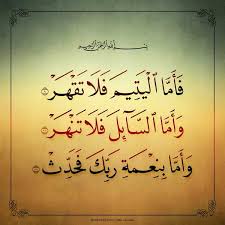 بسم الله الرحمن الرحيم
فَأَمَّا ٱلْيَتِيمَ فَلَا تَقْهَرْ ۝
وَأَمَّا ٱلسَّآئِلَ فَلَا تَنْهَرْ ۝
وَأَمَّا بِنِعْمَةِ رَبِّكَ فَحَدِّثْ ۝